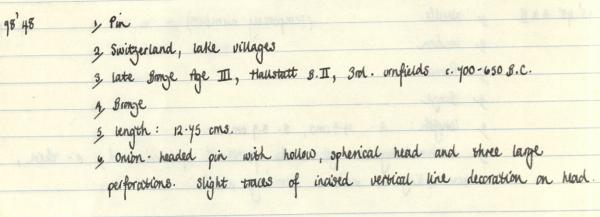 98'48 1, Pin
2, Switzerland, lake villages
3, late Bronze Age III, Hallstatt B.II, 3rd. urnfields c. 700-650 B.C.
4, Bronze
5, length: 12.45 cms.
6, Onion-headed pin with hollow, spherical head and three large
perforations. Slight traces of incised vertical line decoration on head.